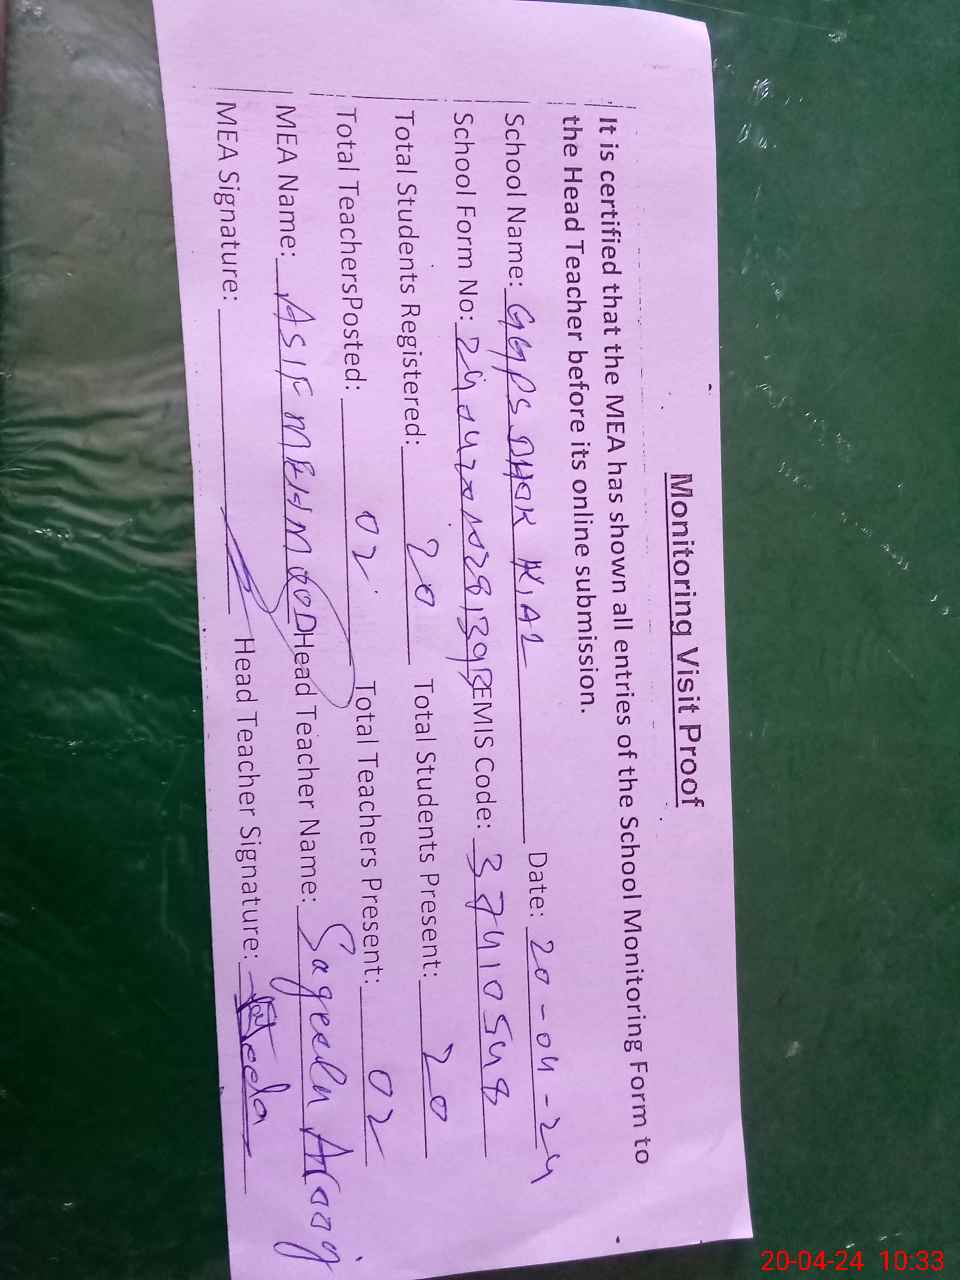 Monitoring Visit Proof
It is certified that the MEA has shown all entries of the School Monitoring Form to
the Head Teacher before its online submission.
School Name: GGPS DHOK KIAL Date: 20-04-24
School Form No: EMIS Code: 37410548
Total Students Registered: 20 Total Students Present: 20
Total TeachersPosted: 02 Total Teachers Present: 02
MEA Name: ASIF MEHMOOD Head Teacher Name:
MEA Signature: Head Teacher Signature:
20-04-24 10:33